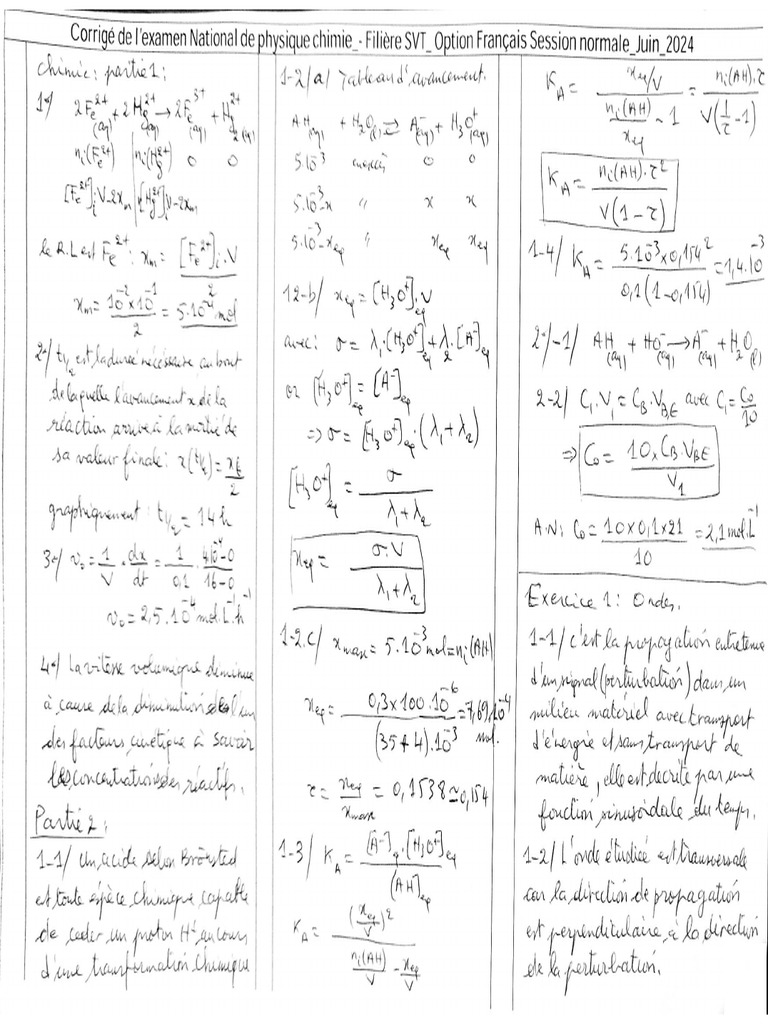 Corrigé de l'examen National de physique chimie_- Filière SVT_ Option Français Session normale_Juin_2024
Chimie: partie 1:
1°/ 2Fe²⁺(aq) + 2Hg²⁺(aq) → 2Fe³⁺(aq) + Hg₂²⁺(aq)
nᵢ(Fe²⁺) | nᵢ(Hg²⁺) 0 0
[Fe²⁺]ᵢV-2xm | [Hg²⁺]ᵢV-2xm
le R.L est Fe²⁺: xm = [Fe²⁺]ᵢ.V / 2
xm = 10⁻² x 10⁻¹ / 2 = 5.10⁻⁴ mol
2°/ t1/2 est la durée nécessaire au bout
de laquelle l'avancement x de la
réaction arrive à la moitié de
sa valeur finale: x(t1/2) = xf/2
graphiquement: t1/2 = 14 h
3°/ v₀ = 1/V . dx/dt = 1/0,1 . 4.10⁻⁴-0 / 16-0
v₀ = 2,5.10⁻⁴ mol.L⁻¹.h⁻¹
4°/ La vitesse volumique diminue
à cause de la diminution de l'un
des facteurs cinétique à savoir
les concentrations des réactifs.
Partie 2:
1-1/ Un acide selon Brönsted
est toute espèce chimique capable
de ceder un proton H⁺ au cours
d'une transformation chimique
1-2/a/ Tableau d'avancement.
AH(aq) + H₂O(l) ⇌ A⁻(aq) + H₃O⁺(aq)
5.10⁻³ excès 0 0
5.10⁻³-x " x x
5.10⁻³-xeq " xeq xeq
12-b/ xeq = [H₃O⁺]eq.V
avec: σ = λ₁.[H₃O⁺]eq + λ₂.[A⁻]eq
or [H₃O⁺]eq = [A⁻]eq
⇒ σ = [H₃O⁺]eq.(λ₁+λ₂)
[H₃O⁺]eq = σ / λ₁+λ₂
xeq = σ.V / λ₁+λ₂
1-2.c/ xmax = 5.10⁻³ mol = nᵢ(AH)
xeq = 0,3x100.10⁻⁶ / (35+4).10⁻³ = 7,69.10⁻⁴ mol.
τ = xeq/xmax = 0,1538 ≃ 0,154
1-3/ KA = [A⁻]eq.[H₃O⁺]eq / [AH]eq
KA = (xeq/V)² / nᵢ(AH)/V - xeq/V
KA = xeq/V / nᵢ(AH)/xeq - 1 = nᵢ(AH).τ / V(1/τ - 1)
KA = nᵢ(AH).τ² / V(1-τ)
1-4/ KA = 5.10⁻³ x 0,154² / 0,1(1-0,154) = 1,4.10⁻³
2°/-1/ AH(aq) + HO⁻(aq) → A⁻(aq) + H₂O(l)
2-2/ C₁.V₁ = CB.VBE avec C₁ = C₀/10
⇒ C₀ = 10 x CB.VBE / V₁
A.N: C₀ = 10x0,1x21 / 10 = 2,1 mol.L⁻¹
Exercice 1: Ondes.
1-1/ C'est la propagation entretenue
d'un signal (perturbation) dans un
milieu matériel avec transport
d'énergie et sans transport de
matière, elle est decrite par une
fonction sinusoïdale du temps.
1-2/ L'onde étudiée est transversale
car la direction de propagation
est perpendiculaire à la direction
de la perturbation.